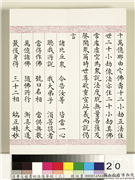 千萬億那由他佛壽十二小劫正法住
世二十小劫像法亦住二十小劫其佛
常處虛空為眾說法度脫無量菩薩及
聲聞眾爾時世尊欲重宣此義而說偈
言
諸比丘眾 今告汝等 皆當一心
聽我所說 我大弟子 須菩提者
當得作佛 號曰名相 當供無數
萬億諸佛 隨佛所行 漸具大道
最後身得 三十二相 端正姝妙
20